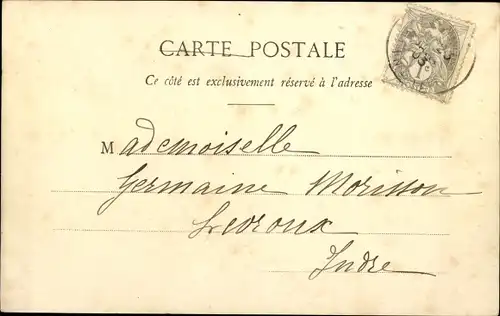 CARTE POSTALE
Ce côté est exclusivement réservé à l'adresse
Mademoiselle
Germaine Morisson
Levroux
Indre